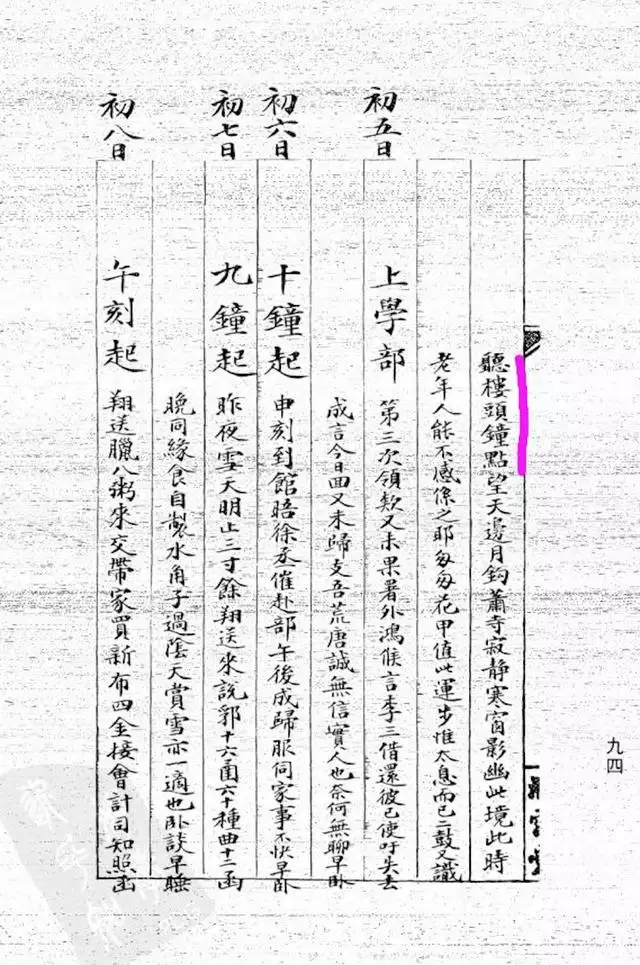 聽樓頭鐘點望天邊月鈎蕭寺寂靜寒窗影幽此境此時
老年人能不感係之耶匆匆花甲值此運步惟太息而已二鼓又識
初五日 上學部 第三次領款又未果署外鴻候言李三借還彼已使吁失去
成言今日面又未歸支吾荒唐誠無信實人也奈何無聊早卧
初六日 十鐘起 申刻到館晤徐丞催赴部午後成歸服伺家事不快早卧
初七日 九鐘起 昨夜雪天明止三寸餘翔送來說郛十六函六十種曲十二函
晚同緣食自製水角子過陰天賞雪亦一適也卧談早睡
初八日 午刻起 翔送臘八粥來交帶家買新布四金接會計司知照函
九四